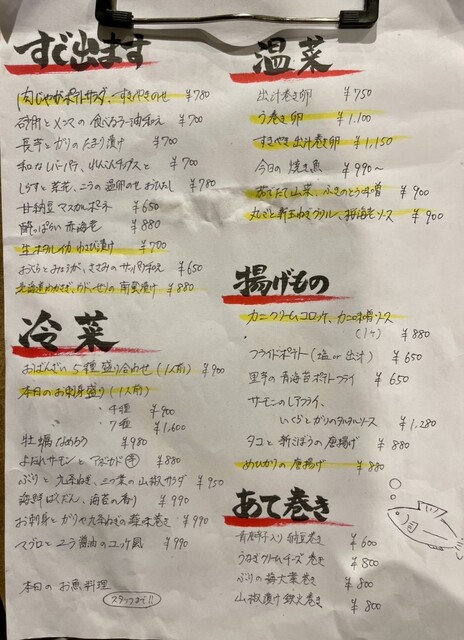 すぐ出ます
肉じゃがポテトサラダ、すきやきのせ ¥780
砂肝とメンマの食べるラー油和え ¥700
長芋とガリのたまり漬け ¥700
和なレバーパテ、れんこんチップスと ¥700
しらすと菜花、ニラの温卵のせおひたし ¥780
甘納豆マスカルポーネ ¥650
酔っぱらい赤海老 ¥880
生ホタルイカわさび漬け ¥700
おくらとみょうが、ささみのサッパリ和え ¥650
北海道わかさぎ、ウド、せりの南蛮漬け ¥880
冷菜
おばんざい5種盛り合わせ(1人前) ¥900
本日のお刺身盛り(1人前)
〃 4種 ¥900
〃 7種 ¥1,600
牡蠣なめろう ¥980
よだれサーモンとアボカド ¥880
ぶりと九条ねぎ、三つ葉の山椒サラダ ¥950
海鮮ばくだん、海苔の香り ¥990
お刺身とガリや九条ねぎの薬味巻き ¥990
マグロとニラ醤油のユッケ風 ¥990
本日のお魚料理
スタッフまで!!
温菜
出汁巻き卵 ¥750
う巻き卵 ¥1,100
すきやき出汁巻き卵 ¥1,150
今日の焼き魚 ¥990〜
あてたて山菜、ふきのとう味噌 ¥900
丸ごと新玉ねぎグリル、桜海老ソース ¥900
揚げもの
カニクリームコロッケ、カニ味噌ソース
(1ヶ) ¥880
フライドポテト(塩or出汁) ¥650
里芋の青海苔ポテトフライ ¥650
サーモンのレアフライ、
いくらとガリのタルタルソース ¥1,280
タコと新ごぼうの唐揚げ ¥880
めひかりの唐揚げ ¥880
あて巻き
青唐辛子入り納豆巻き ¥600
うなぎクリームチーズ巻き ¥800
ぶりの梅大葉巻き ¥800
山椒漬け鉄火巻き ¥800